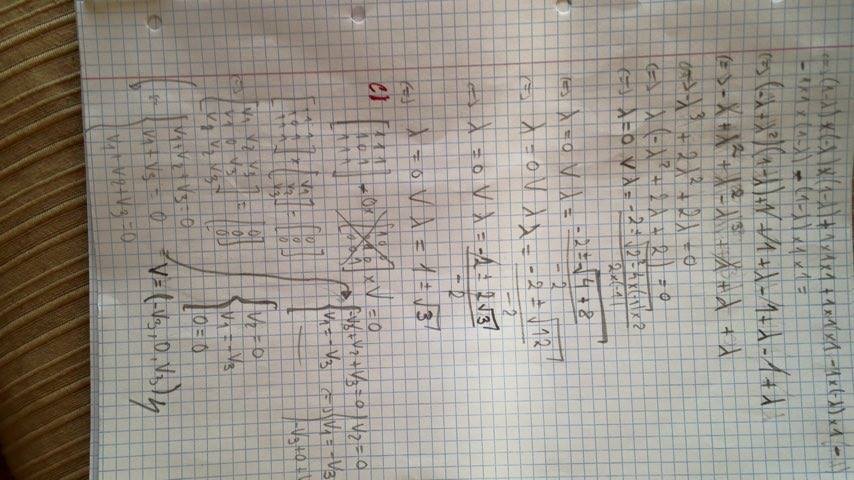 ⇔ (1-λ)×(-λ)×(1-λ)+1×1×1+1×1×1-1×(-λ)×1
-1×1×(1-λ)-(1-λ)×1×1=
⇔ (-λ+λ²)(1-λ)+1+1+λ-1+λ-1+λ
⇔ -λ+λ²+λ²-λ³+λ+λ+λ
⇔ -λ³+2λ²+2λ=0
⇔ λ(-λ²+2λ+2)=0
⇔ λ=0 ∨ λ=(-2±√(2²-4×(-1)×2))/(2×(-1))
⇔ λ=0 ∨ λ=(-2±√(4+8))/(-2)
⇔ λ=0 ∨ λλ=(-2±√12)/(-2)
⇔ λ=0 ∨ λ=(-2±2√3)/(-2)
⇔ λ=0 ∨ λ=1±√3
c) [1 1 1; 1 0 1; 1 1 1] - 0×[1 0 0; 0 1 0; 0 0 1]×V=0
[1 1 1; 1 0 1; 1 1 1]×[V1; V2; V3]=[0; 0; 0]
⇔ [V1 V2 V3; V1 0 V3; V1 V2 V3]=[0; 0; 0]
⇔ {V1+V2+V3=0
V1+V3=0
V1+V2+V3=0
{-V3+V2+V3=0
V1=-V3
⇔ {V2=0
V1=-V3
-V3+0+V
{V2=0
V1=-V3
0=0
V=(-V3, 0, V3)